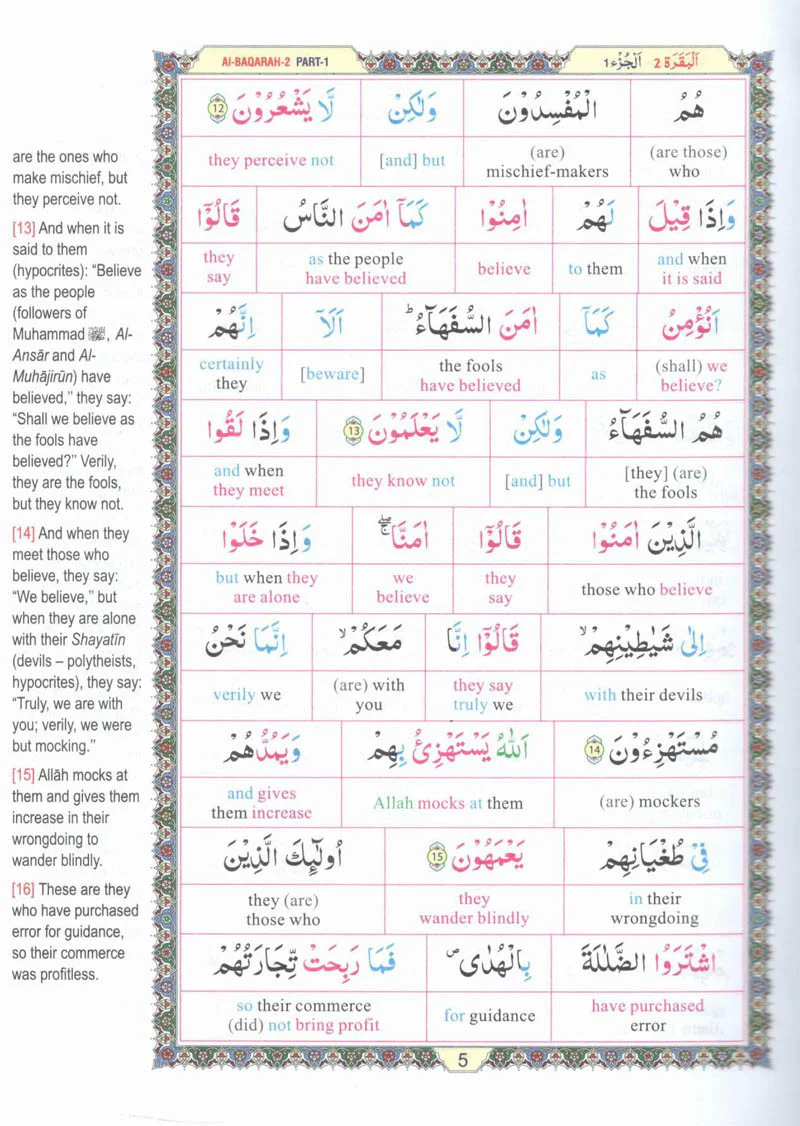 Al-BAQARAH-2 PART-1
اَلْبَقَرَة 2 اَلْجُزْء 1
هُمُ الْمُفْسِدُوْنَ وَلٰكِنْ لَّا يَشْعُرُوْنَ 12
(are those) who
(are) mischief-makers
[and] but
they perceive not
وَاِذَا قِيْلَ لَهُمْ اٰمِنُوْا كَمَاۤ اٰمَنَ النَّاسُ قَالُوْۤا
and when it is said
to them
believe
as the people have believed
they say
اَنُؤْمِنُ كَمَاۤ اٰمَنَ السُّفَهَآءُ ؕ اَلَاۤ اِنَّهُمْ
(shall) we believe?
as
the fools have believed
[beware]
certainly they
هُمُ السُّفَهَآءُ وَلٰكِنْ لَّا يَعْلَمُوْنَ 13 وَاِذَا لَقُوا
[they] (are) the fools
[and] but
they know not
and when they meet
الَّذِيْنَ اٰمَنُوْا قَالُوْۤا اٰمَنَّا ۖۚ وَاِذَا خَلَوْا
those who believe
they say
we believe
but when they are alone
اِلٰى شَيٰطِيْنِهِمْ ۙ قَالُوْۤا اِنَّا مَعَكُمْ ۙ اِنَّمَا نَحْنُ
with their devils
they say truly we
(are) with you
verily we
مُسْتَهْزِءُوْنَ 14 اَللّٰهُ يَسْتَهْزِئُ بِهِمْ وَيَمُدُّهُمْ
(are) mockers
Allah mocks at them
and gives them increase
فِيْ طُغْيَانِهِمْ يَعْمَهُوْنَ 15 اُولٰٓئِكَ الَّذِيْنَ
in their wrongdoing
they wander blindly
they (are) those who
اشْتَرَوُا الضَّلٰلَةَ بِالْهُدٰى ۪ فَمَا رَبِحَتْ تِّجَارَتُهُمْ
have purchased error
for guidance
so their commerce (did) not bring profit
are the ones who
make mischief, but
they perceive not.
[13] And when it is
said to them
(hypocrites): “Believe
as the people
(followers of
Muhammad ﷺ, Al-
Ansār and Al-
Muhājirūn) have
believed,” they say:
“Shall we believe as
the fools have
believed?” Verily,
they are the fools,
but they know not.
[14] And when they
meet those who
believe, they say:
“We believe,” but
when they are alone
with their Shayatīn
(devils – polytheists,
hypocrites), they say:
“Truly, we are with
you; verily, we were
but mocking.”
[15] Allāh mocks at
them and gives them
increase in their
wrongdoing to
wander blindly.
[16] These are they
who have purchased
error for guidance,
so their commerce
was profitless.
5